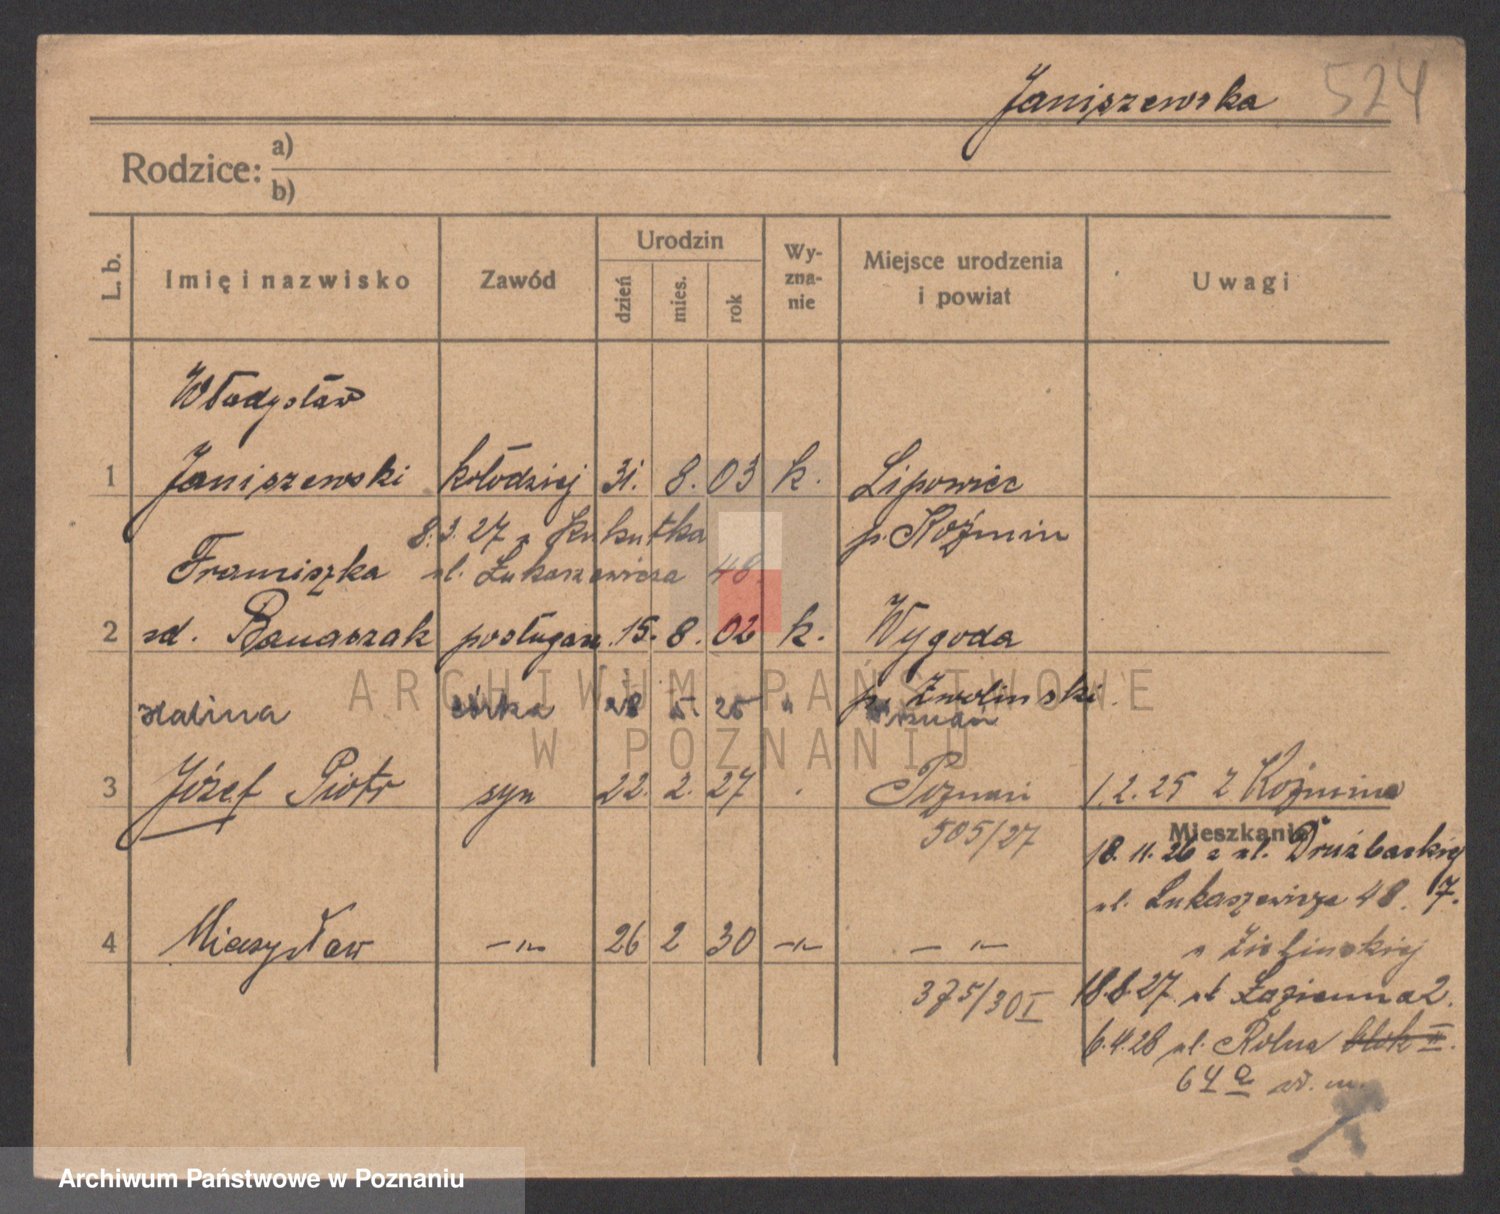 Janiszewska 524
Rodzice: a)
b)
L. b.
Imię i nazwisko
Zawód
Urodzin
dzień
mies.
rok
Wy-
zna-
nie
Miejsce urodzenia
i powiat
Uwagi
Władysław
1 Janiszewski kołodziej 31. 8. 03 k. Lipowiec
p. Koźmin
8.3.27 Kukułka
Franciszka ul. Łukaszewicza 48.
2 zd. Banaszak 15. 8. 02 k. Wygoda
p.
Halina córka 28 5. 25 "
3 Józef Piotr syn 22. 2. 27 Poznań 1.2.25 z Koźmina
505/27
Mieszkanie
18.11.26 z ul. Drużbackiej
ul. Łukaszewicza 48. 7.
4 Mieczysław —"— 26 2 30 —"— — "—
375/30 I
18.8.27 ul. Łazienna 2.
6.4.28 ul. Rolna blok II.
64 a
ARCHIWUM PAŃSTWOWE
W POZNANIU
Archiwum Państwowe w Poznaniu